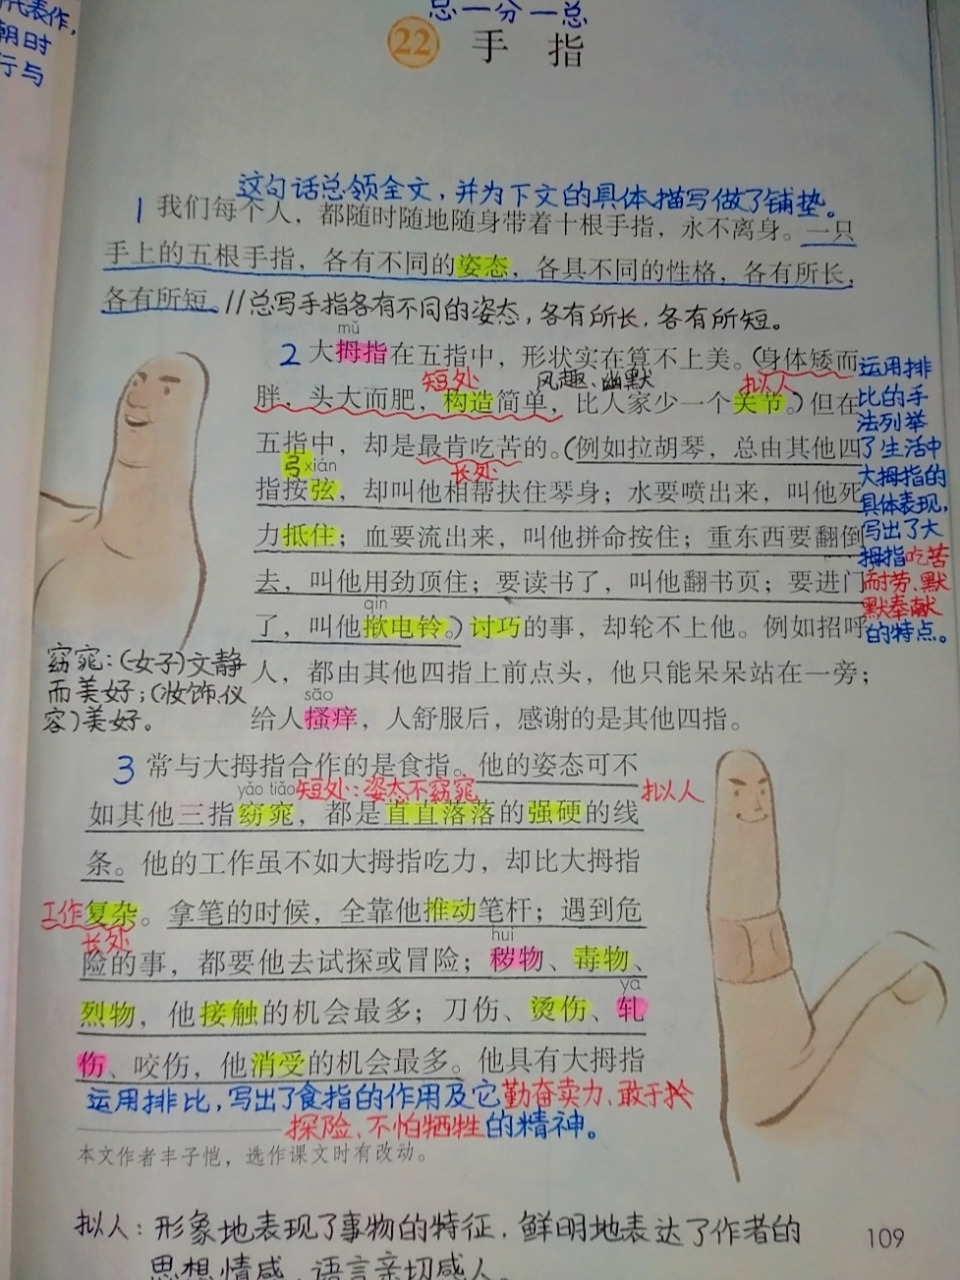 代表作，
朝时
行与
总一分一总
22 手指
这句话总领全文，并为下文的具体描写做了铺垫。
1 我们每个人，都随时随地随身带着十根手指，永不离身。一只
手上的五根手指，各有不同的姿态，各具不同的性格，各有所长，
各有所短。//总写手指各有不同的姿态，各有所长，各有所短。
mǔ
2 大拇指在五指中，形状实在算不上美。(身体矮而
短处 风趣、幽默 拟人
胖，头大而肥，构造简单，比人家少一个关节。)但在
五指中，却是最肯吃苦的。(例如拉胡琴，总由其他四
弓 xián 长处
指按弦，却叫他相帮扶住琴身；水要喷出来，叫他死
力抵住；血要流出来，叫他拼命按住；重东西要翻倒
去，叫他用劲顶住；要读书了，叫他翻书页；要进门
qìn
了，叫他揿电铃。)讨巧的事，却轮不上他。例如招呼
人，都由其他四指上前点头，他只能呆呆站在一旁；
sāo
给人搔痒，人舒服后，感谢的是其他四指。
运用排
比的手
法列举
了生活中
大拇指的
具体表现，
写出了大
拇指吃苦
耐劳、默
默奉献
的特点。
窈窕：(女子)文静
而美好；(妆饰、仪
容)美好。
3 常与大拇指合作的是食指。他的姿态可不
yǎo tiǎo 短处：姿态不窈窕 拟人
如其他三指窈窕，都是直直落落的强硬的线
条。他的工作虽不如大拇指吃力，却比大拇指
工作复杂。拿笔的时候，全靠他推动笔杆；遇到危
长处 huì
险的事，都要他去试探或冒险；秽物、毒物、
yà
烈物，他接触的机会最多；刀伤、烫伤、轧
伤、咬伤，他消受的机会最多。他具有大拇指
运用排比，写出了食指的作用及它勤奋卖力、敢于
探险、不怕牺牲的精神。
本文作者丰子恺，选作课文时有改动。
拟人：形象地表现了事物的特征，鲜明地表达了作者的
思想情感，语言亲切感人。
109